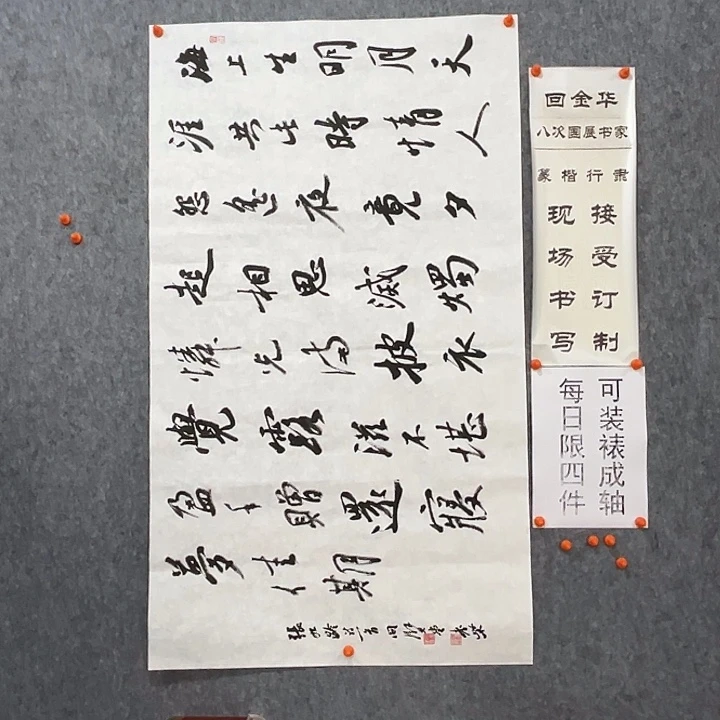 海上生明月天
涯共此時情人
怨遥夜竟夕
起相思滅燭
憐光滿披衣
覺露滋不堪
盈手贈還寢
夢佳期
張九齡
回金华
八次国展书家
篆楷行隶
接受订制
现场书写
可装裱成轴
每日限四件